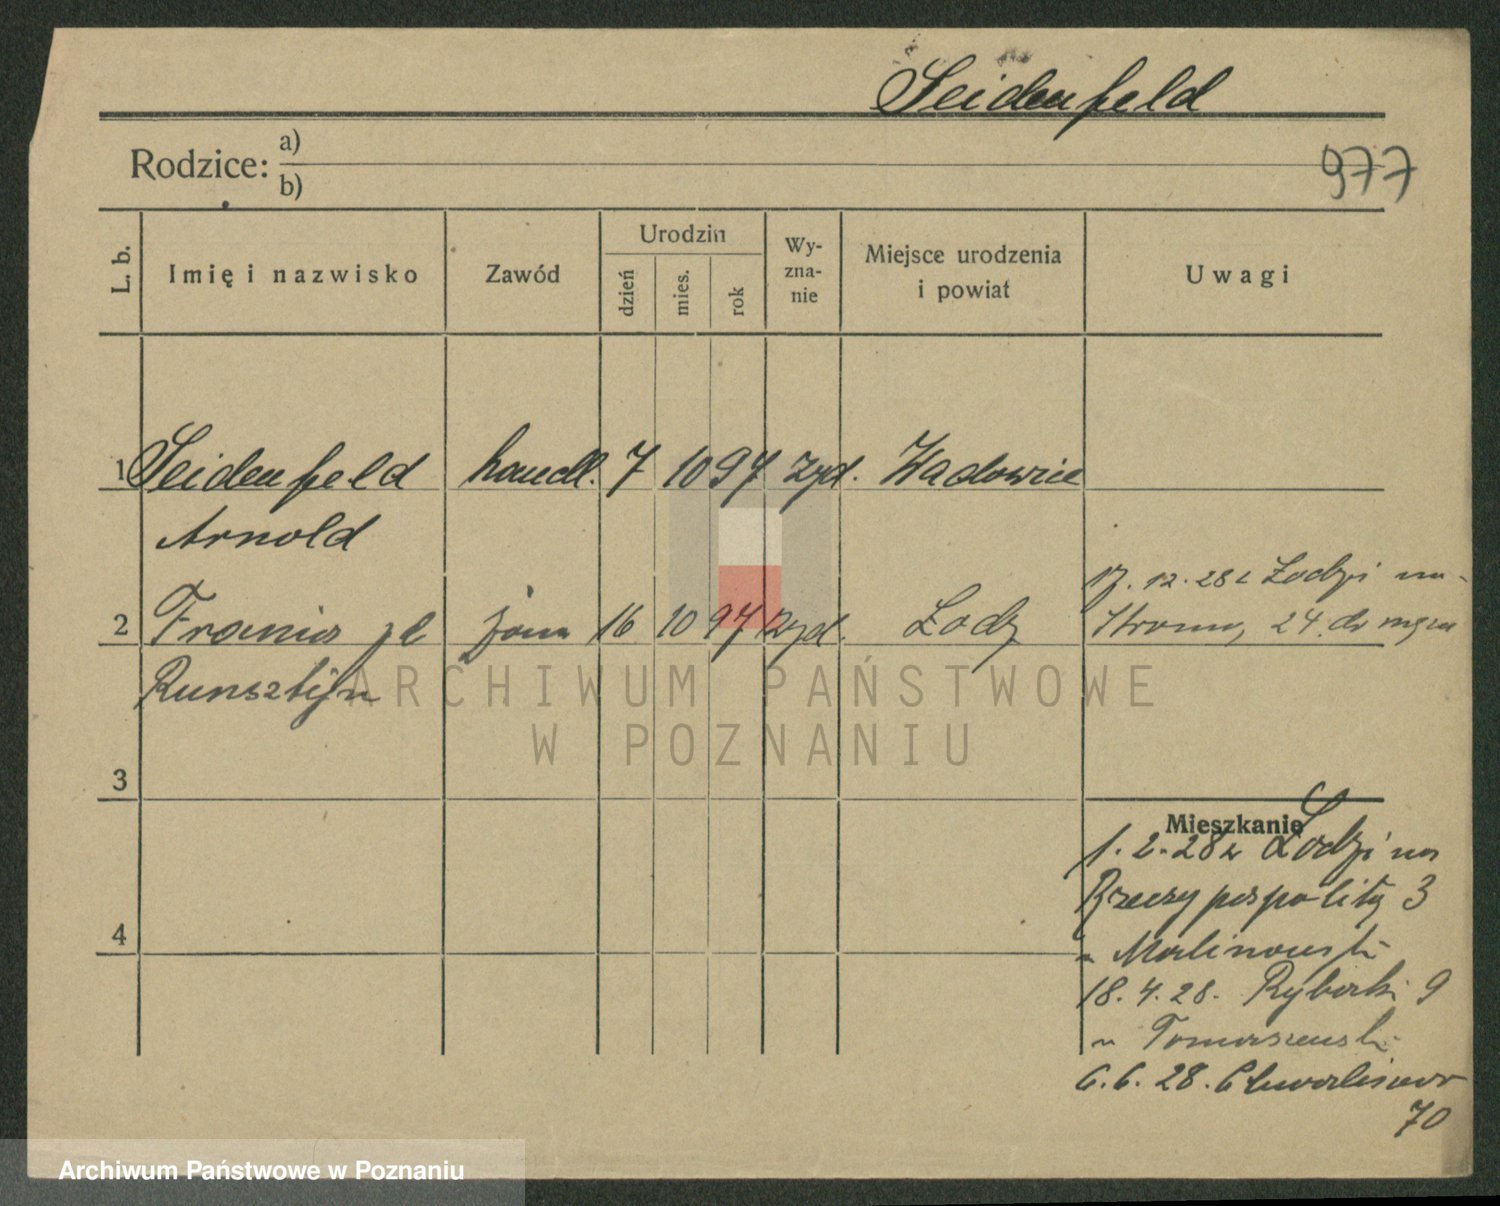 Seidenfeld
Rodzice: a)
b)
977
L. b.
Imię i nazwisko
Zawód
Urodzin
dzień
mies.
rok
Wy-
zna-
nie
Miejsce urodzenia
i powiat
Uwagi
1 Seidenfeld handl. 7 10 97 żyd. Wadowice
Arnold
17. 12. 28 z Łodzi na
2 Frania żona 16 10 97 żyd. Łodz 24. do męża
Runsztijn
ARCHIWUM PAŃSTWOWE
W POZNANIU
3
Mieszkanie
1. 2. 28 z Łodzi na
Rzeczypospolitą 3
u Malinowski
4
18. 4. 28. Rybaki 9
u Tomaszewski
6. 6. 28. Chwaliszewo
70
Archiwum Państwowe w Poznaniu